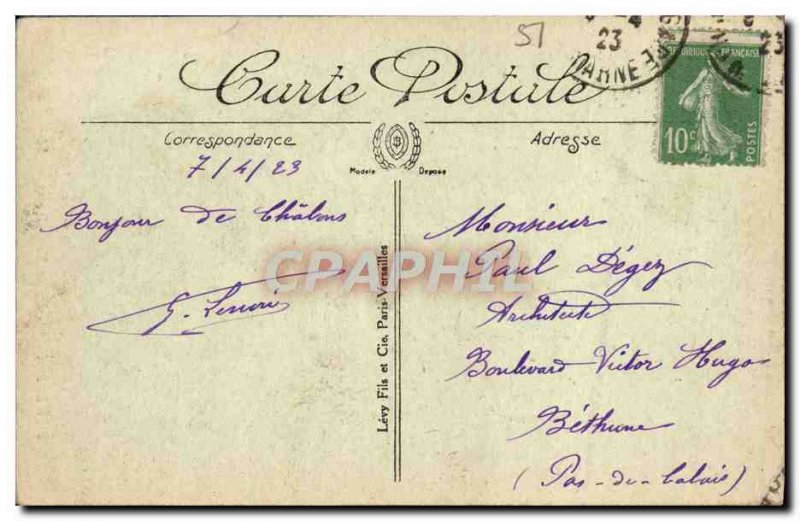 51
23
MARNE
REPUBLIQUE FRANÇAISE
10c
POSTES
23
Carte Postale
Correspondance
Adresse
Modele Depose
7/4/23
Bonjour de Châlons
G.
Lévy Fils et Cie, Paris-Versailles
CPAPHIL
Monsieur
Paul Dégez
Architecte
Boulevard Victor Hugo
Béthune
(Pas-de-Calais)